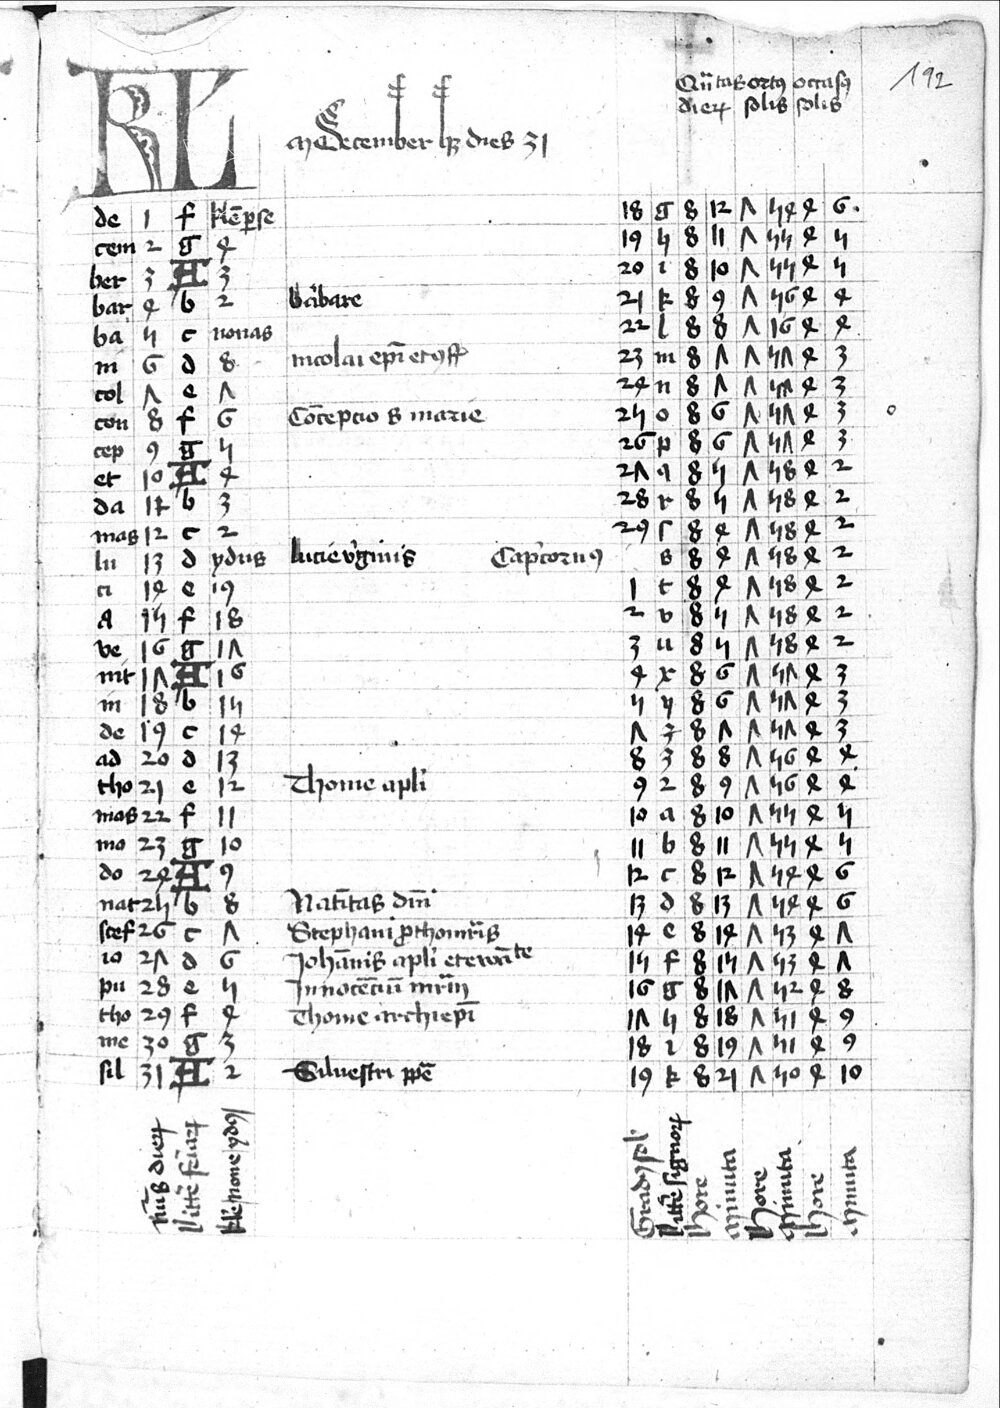 192
Qu̅tas ortꝰ occasꝰ
dieꝝ solis solis
KL
December hꝫ dies 31
de 1 f kle̅ p̲se 18 g 8 12 7 54 4 6
cem 2 g 4 19 h 8 11 7 55 4 5
ber 3 A 3 20 i 8 10 7 55 4 5
bar 4 b 2 barbare 21 k 8 9 7 56 4 4
ba 5 c nonas 22 l 8 8 7 16 4 4
ni 6 d 8 nicolai ep̅i et ꝯff 23 m 8 7 7 57 4 3
col 7 e 7 24 n 8 7 7 57 4 3
con 8 f 6 Co̅cepcio b marie 25 o 8 6 7 57 4 3
cep 9 g 5 26 p 8 6 7 57 4 3
et 10 A 4 27 q 8 5 7 58 4 2
da 11 b 3 28 r 8 5 7 58 4 2
mas 12 c 2 29 ſ 8 4 7 58 4 2
lu 13 d ydus lucie v̓ginis Cap̓cornꝰ s 8 4 7 58 4 2
ci 14 e 19 1 t 8 4 7 58 4 2
A 15 f 18 2 v 8 5 7 58 4 2
ve 16 g 17 3 u 8 5 7 58 4 2
nit 17 A 16 4 x 8 6 7 57 4 3
in 18 b 15 5 y 8 6 7 57 4 3
de 19 c 14 7 z 8 7 7 57 4 3
ad 20 d 13 8 3 8 8 7 56 4 4
tho 21 e 12 Thome apl̓i 9 2 8 9 7 56 4 4
mas 22 f 11 10 a 8 10 7 55 4 5
mo 23 g 10 11 b 8 11 7 55 4 5
do 24 A 9 12 c 8 12 7 54 4 6
nat 25 b 8 Nat̅itas dn̅i 13 d 8 13 7 54 4 6
stef 26 c 7 Stephani p̲thom̅ris 14 e 8 14 7 53 4 7
io 27 d 6 Joha̅nis apl̓i et ewa̅te 15 f 8 15 7 53 4 7
pu 28 e 5 Innoce̅ciu̅ mr̅m 16 g 8 17 7 52 4 8
tho 29 f 4 Thome archiep̅i 17 h 8 18 7 51 4 9
me 30 g 3 18 i 8 19 7 51 4 9
sil 31 A 2 Siluestri pp̅e 19 k 8 21 7 50 4 10
nu̅s dieꝝ
litt̅e fe̅iaꝝ
kl̅e none ydꝰ
Gradꝰ sol̓
litt̅e signoꝝ
hore
minuta
hore
minuta
hore
minuta